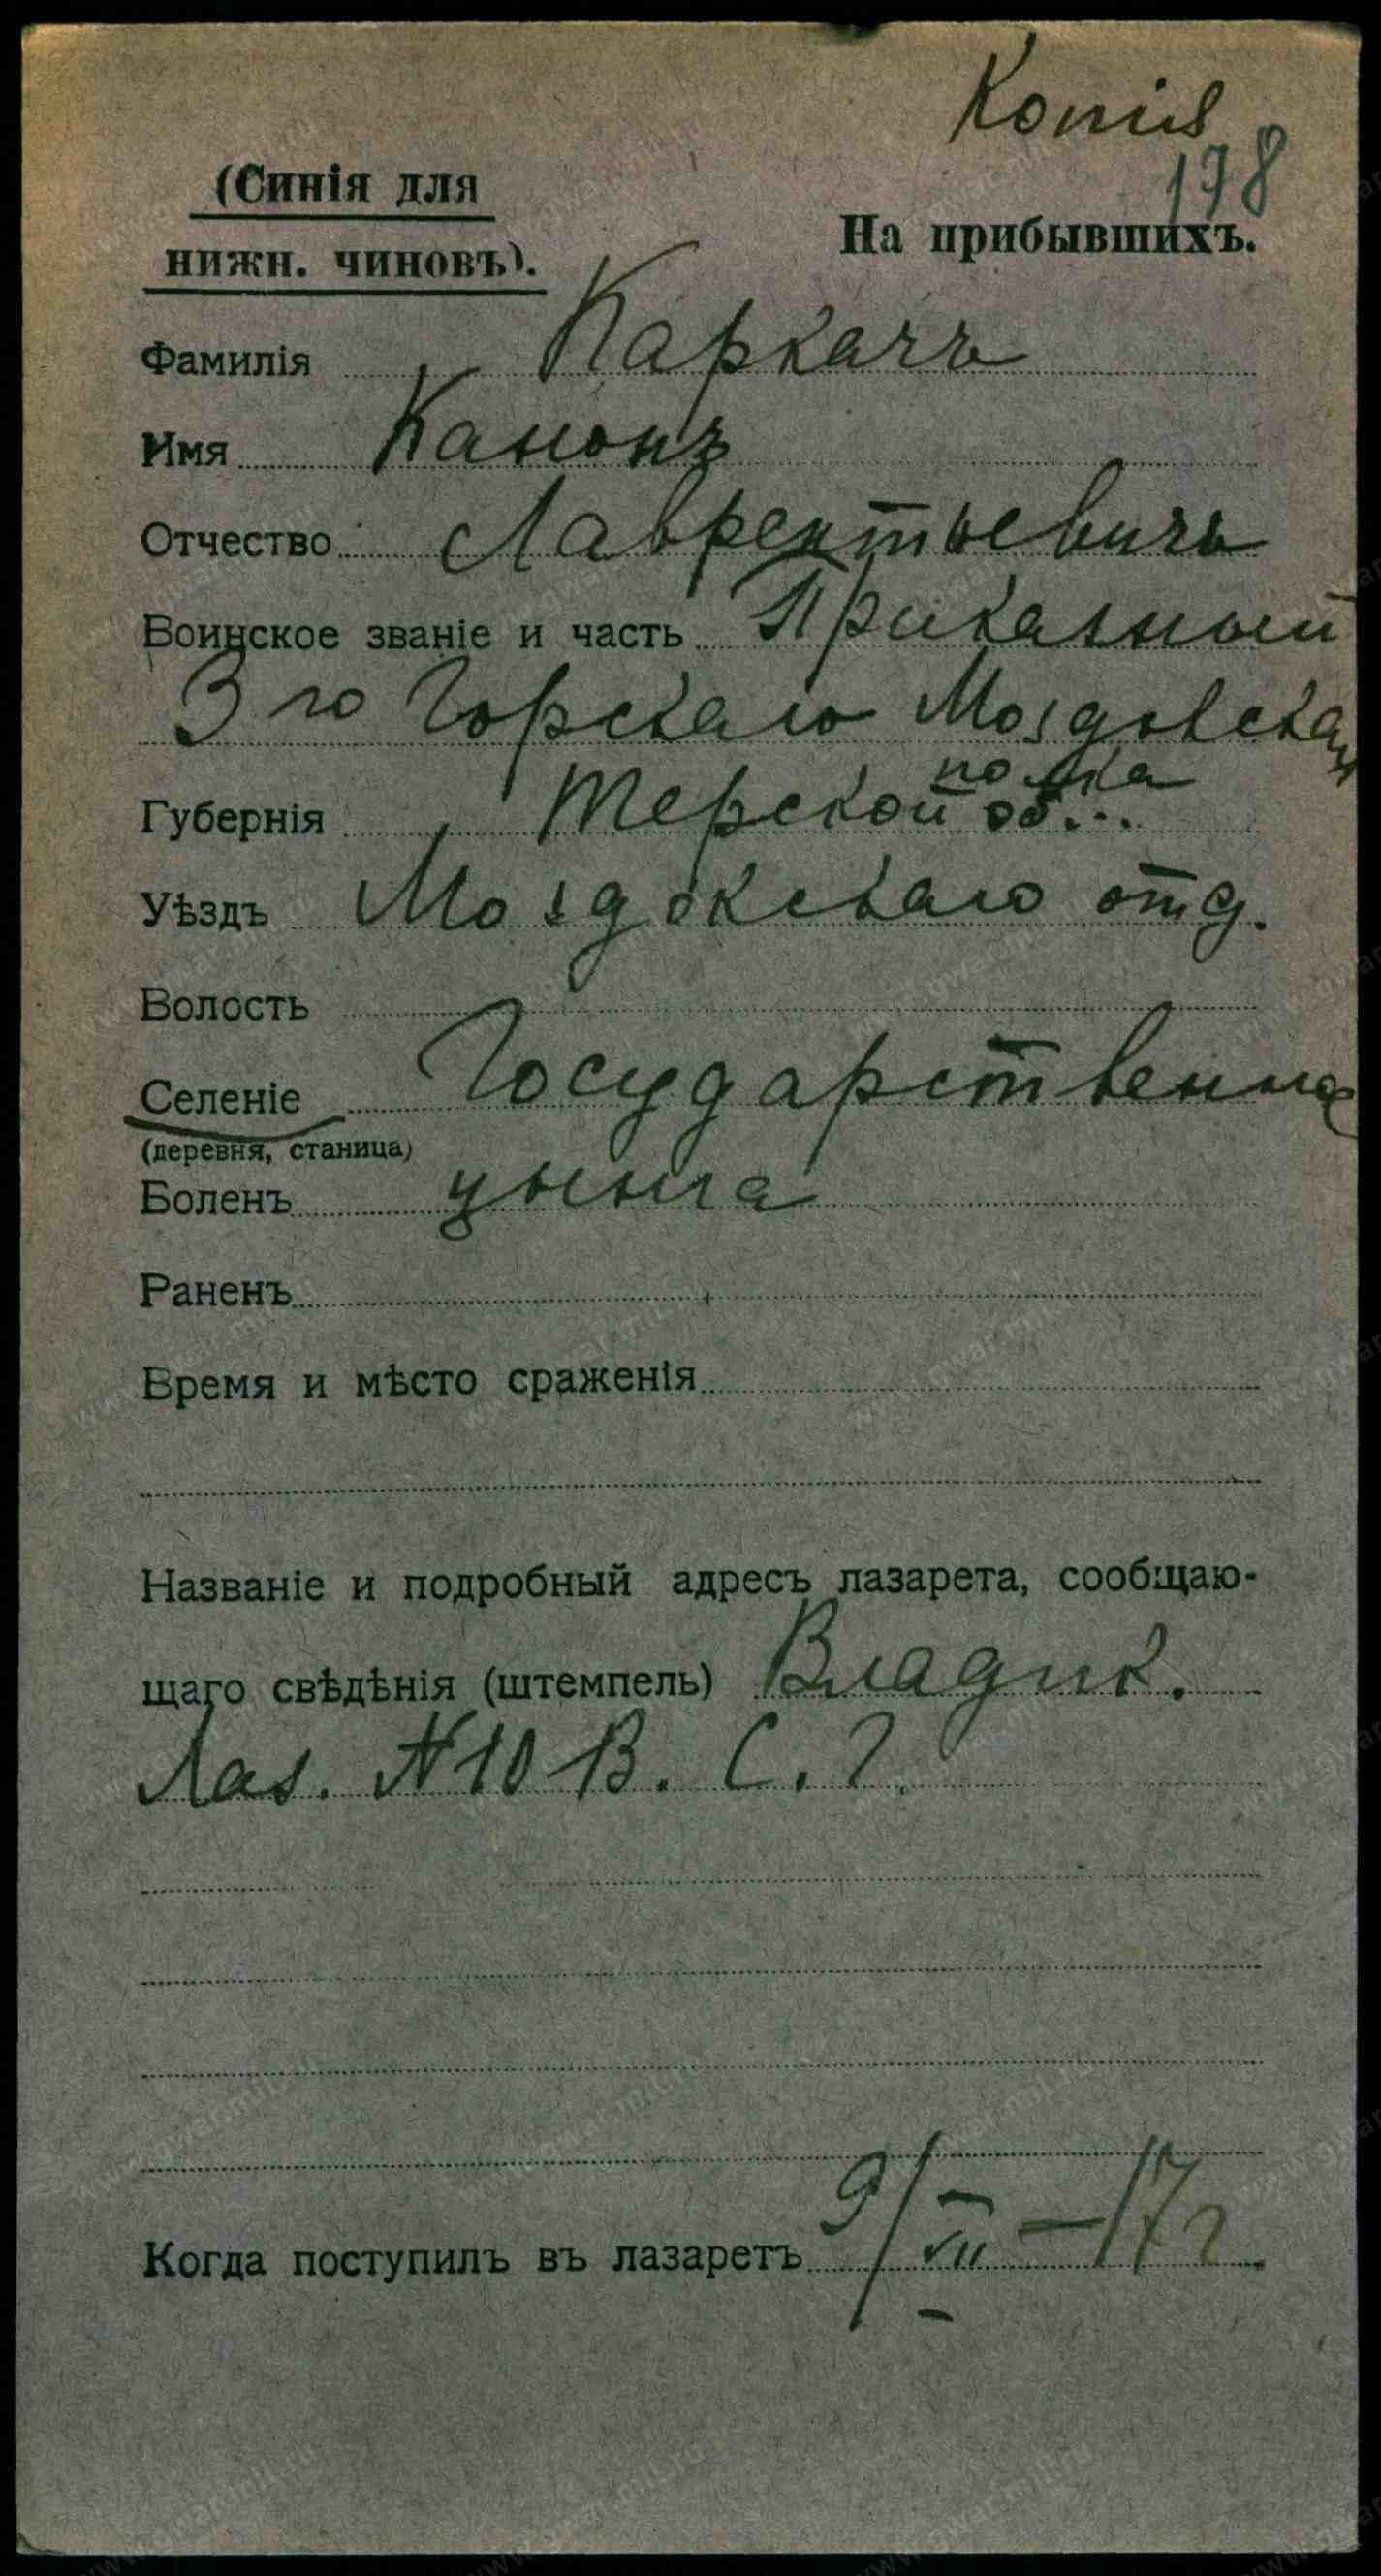 Копія
178
(Синія для
нижн. чиновъ).
На прибывшихъ.
Фамилія Каркачъ
Имя Канонъ
Отчество Лаврентьевичъ
Воинское званіе и часть Приказный
3 го Горскаго Моздовскаго
полка
Губернія Терской об...
Уѣздъ Моздокскаго отд.
Волость
Селеніе Государственная
(деревня, станица)
Боленъ цынга
Раненъ
Время и мѣсто сраженія
Названіе и подробный адресъ лазарета, сообщаю-
щаго свѣдѣнія (штемпель) Владик.
Лаз. №10 В. С. Г.
Когда поступилъ въ лазаретъ 9/VII–17г.